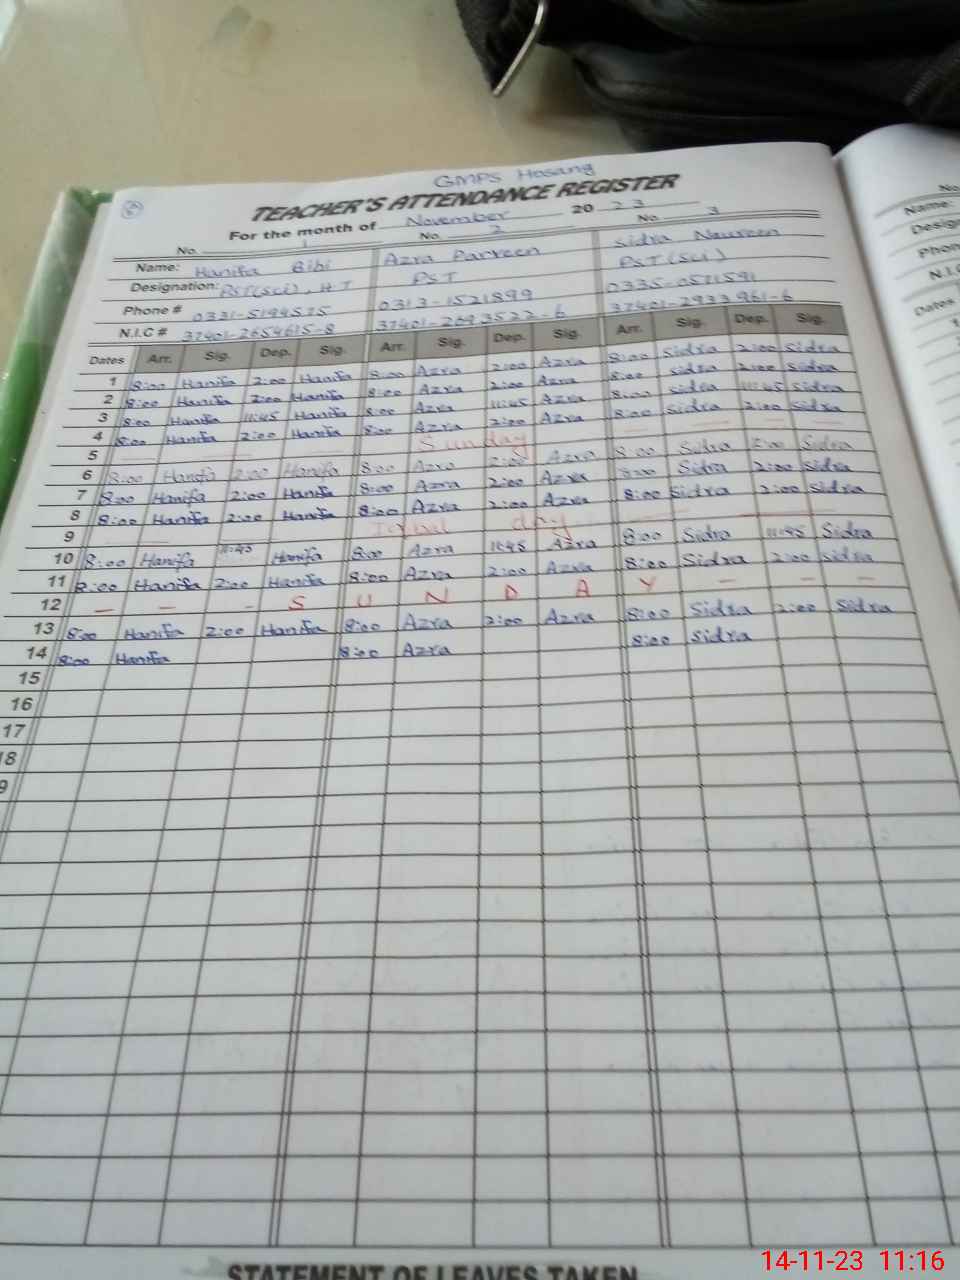 GMPS Hosang
TEACHER'S ATTENDANCE REGISTER
For the month of November 2023
No. 1 No. 2 No. 3
Name: Hanifa Bibi Azra Parveen Sidra Naureen
Designation: PST(sci), HT PST PST (sci)
Phone # 0331-5194575 0313-1521899 0335-0571591
N.I.C # 37401-2654615-8 37401-2693522-6 37401-2933961-6
Dates Arr. Sig. Dep. Sig. Arr. Sig. Dep. Sig. Arr. Sig. Dep. Sig.
1 8:00 Hanifa 2:00 Hanifa 8:00 Azra 2:00 Azra 8:00 Sidra 2:00 Sidra
2 8:00 Hanifa 2:00 Hanifa 8:00 Azra 2:00 Azra 8:00 Sidra 2:00 Sidra
3 8:00 Hanifa 11:45 Hanifa 8:00 Azra 11:45 Azra 8:00 Sidra 11:45 Sidra
4 8:00 Hanifa 2:00 Hanifa 8:00 Azra 2:00 Azra 8:00 Sidra 2:00 Sidra
5 Sunday
6 8:00 Hanifa 2:00 Hanifa 8:00 Azra 2:00 Azra 8:00 Sidra 2:00 Sidra
7 8:00 Hanifa 2:00 Hanifa 8:00 Azra 2:00 Azra 8:00 Sidra 2:00 Sidra
8 8:00 Hanifa 2:00 Hanifa 8:00 Azra 2:00 Azra 8:00 Sidra 2:00 Sidra
9 Iqbal day
10 8:00 Hanifa 11:45 Hanifa 8:00 Azra 11:45 Azra 8:00 Sidra 11:45 Sidra
11 8:00 Hanifa 2:00 Hanifa 8:00 Azra 2:00 Azra 8:00 Sidra 2:00 Sidra
12 - - - S U N D A Y - - -
13 8:00 Hanifa 2:00 Hanifa 8:00 Azra 2:00 Azra 8:00 Sidra 2:00 Sidra
14 8:00 Hanifa 8:00 Azra 8:00 Sidra
15
16
17
18
9
STATEMENT OF LEAVES TAKEN
No.
Name:
Design
Phon
N.I.C
Dates
14-11-23 11:16